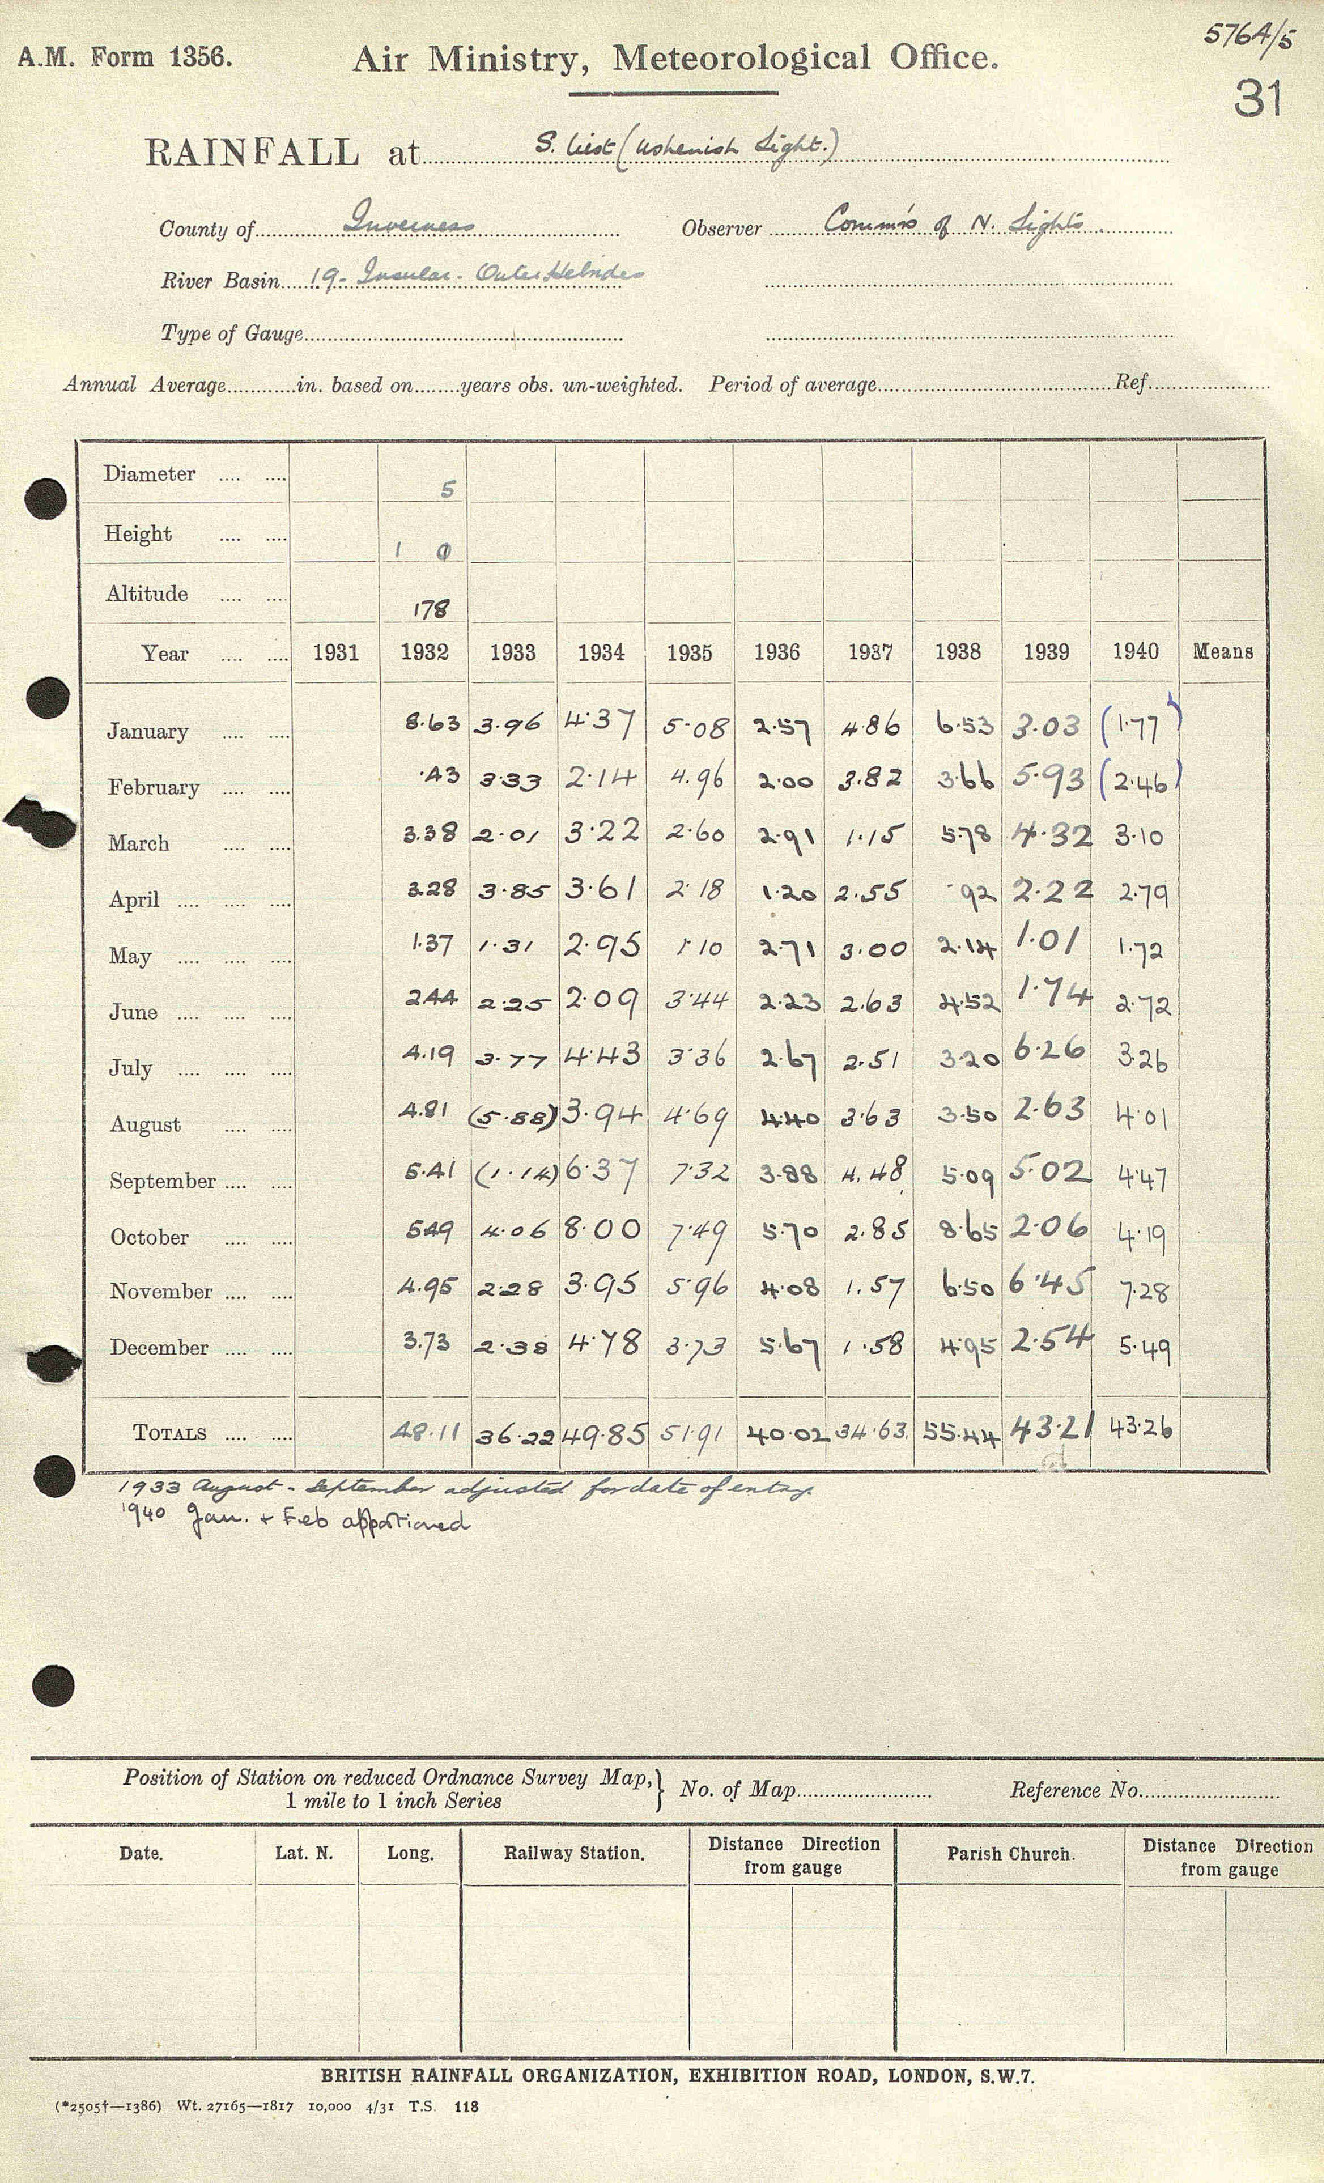 5764/5
A.M. Form 1356.
Air Ministry, Meteorological Office.
31
RAINFALL at S. Uist (Ushenish Light.)
County of Inverness Observer Commrs of N. Lights.
River Basin 19 - Insular - Outer Hebrides
Type of Gauge
Annual Average in. based on years obs. un-weighted. Period of average Ref.
Diameter 5
Height 1 0
Altitude 178
Year 1931 1932 1933 1934 1935 1936 1937 1938 1939 1940 Means
January 8.63 3.96 4.37 5.08 2.57 4.86 6.53 3.03 (1.77)
February .43 3.33 2.14 4.96 2.00 3.82 3.66 5.93 (2.46)
March 3.38 2.01 3.22 2.60 2.91 1.15 5.78 4.32 3.10
April 3.28 3.85 3.61 2.18 1.20 2.55 .92 2.22 2.79
May 1.37 1.31 2.95 1.10 2.71 3.00 2.14 1.01 1.72
June 2.44 2.25 2.09 3.44 2.23 2.63 4.52 1.74 2.72
July 4.19 3.77 4.43 3.36 2.67 2.51 3.20 6.26 3.26
August 4.81 (5.88) 3.94 4.69 4.40 3.63 3.50 2.63 4.01
September 5.41 (1.14) 6.37 7.32 3.88 4.48 5.09 5.02 4.47
October 5.49 4.06 8.00 7.49 5.70 2.85 8.65 2.06 4.19
November 4.95 2.28 3.95 5.96 4.08 1.57 6.50 6.45 7.28
December 3.73 2.38 4.78 3.73 5.67 1.58 4.95 2.54 5.49
TOTALS 48.11 36.22 49.85 51.91 40.02 34.63 55.44 43.21 43.26
1933 August - September adjusted for date of entry.
1940 Jan. + Feb apportioned
Position of Station on reduced Ordnance Survey Map, 1 mile to 1 inch Series } No. of Map Reference No.
Date. Lat. N. Long. Railway Station. Distance Direction from gauge Parish Church. Distance Direction from gauge
BRITISH RAINFALL ORGANIZATION, EXHIBITION ROAD, LONDON, S.W.7.
(*2505†—1386) Wt. 27165—1817 10,000 4/31 T.S. 118